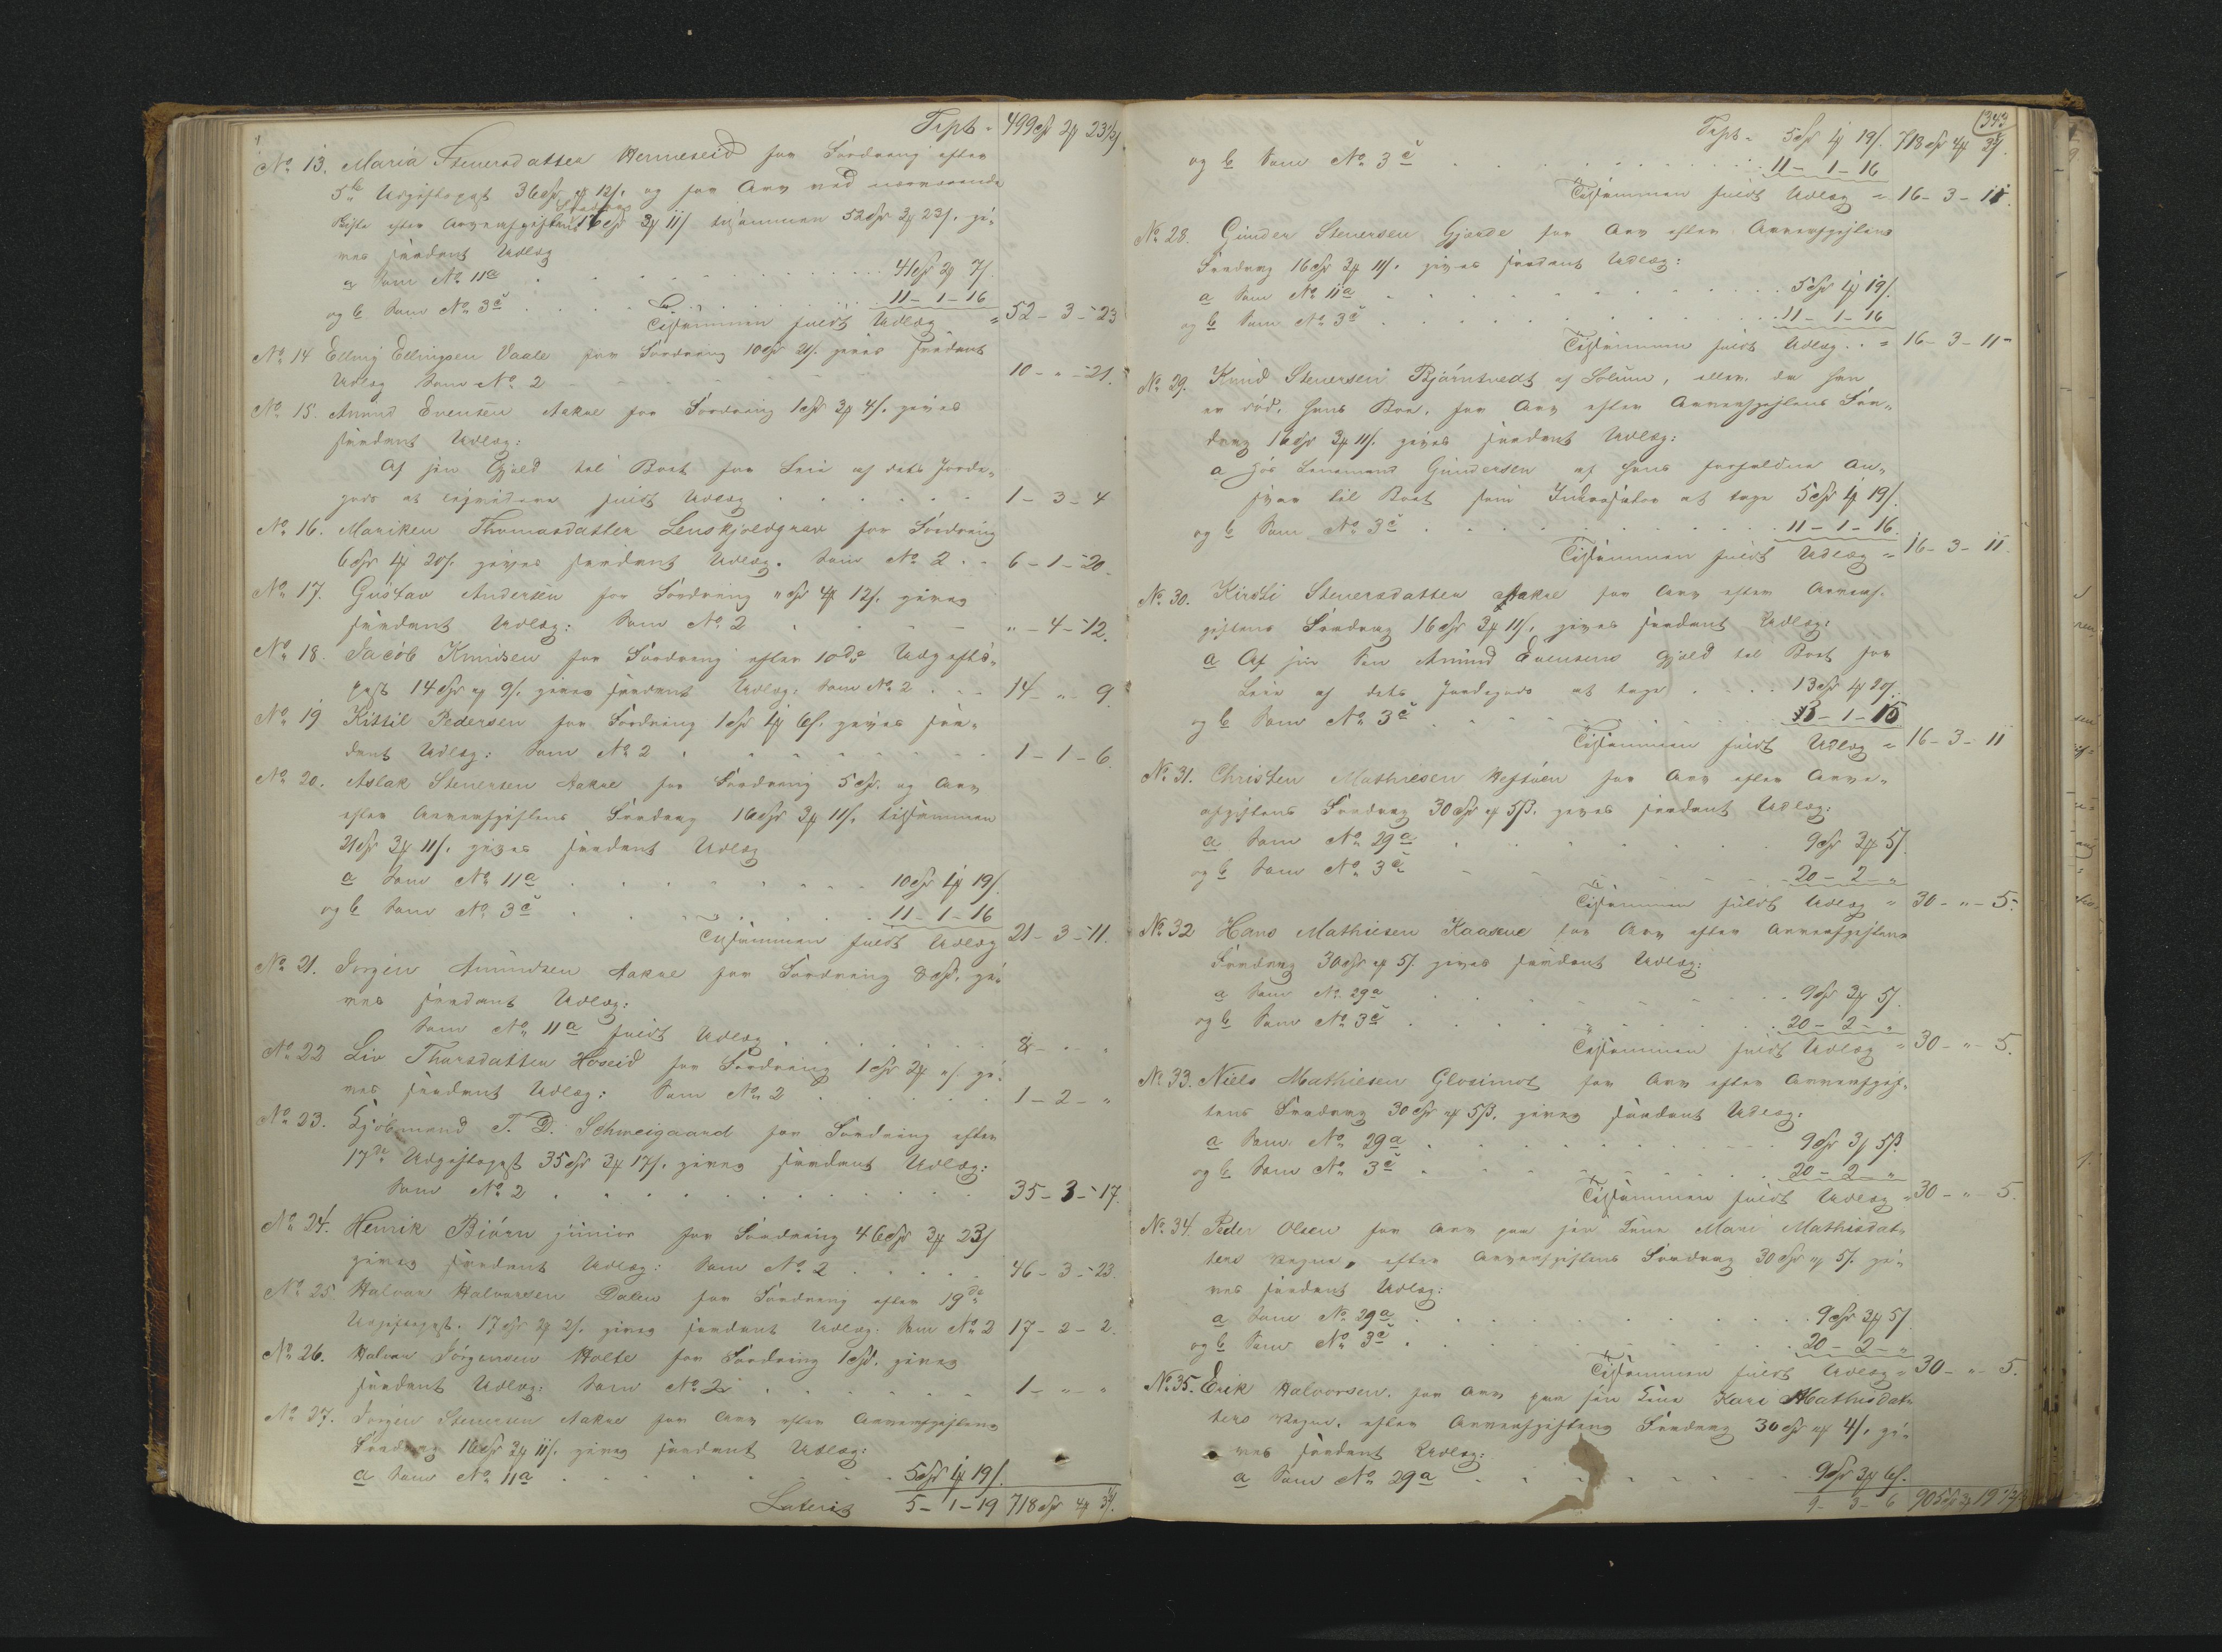 Trpt. 499 Spd 2 ₻ 23½ s.
No 13. Maria Stenersdatter Henneseid for Fordring efter
5te Udgiftspost 36 Spd " ₻ 12 s. og for Arv ved nærværende
Skifte efter Arveafgiftens Fradrag 16 Spd 3 ₻ 11 s tilsammen 52 Spd 3 ₻ 23 s. gi-
ves saadant Udlæg
a Som No 11 a . . . 41 Spd 2 ₻ 7 s.
og b Som No 3 c . . . 11 - 1 - 16
Tilsammen fuldt Udlæg = 52 - 3 - 23
No 14 Elling Ellingsen Vaale for Fordring 10 Spd 21 s. gives saadant
Udlæg Som No 2 10 - " - 21.
No 15. Amund Evensen Aakre for Fordring 1 Spd 3 ₻ 4 s. gives
saadant Udlæg:
Af sin Gjæld til Boet for Leie af dets Jorde-
gods at liqvidere fuldt Udlæg . . . 1 - 3 - 4
No 16. Mariken Thomasdatter Lenskjoldgrav for Fordring
6 Spd 1 ₻ 20 s. gives saadant Udlæg. Som No 2 . . 6 - 1 - 20.
No 17. Gustav Andersen for Fordring " Spd 4 ₻ 12 s. gives
saadant Udlæg: Som No 2 " - 4 - 12.
No 18. Jacob Knudsen for Fordring efter 10de Udgifts-
post 14 Spd " ₻ 9 s. gives saadant Udlæg: Som No 2 . . . 14 - " - 9.
No 19 Kittil Pedersen for Fordring 1 Spd 1 ₻ 6 s. gives saa-
dant Udlæg: Som No 2 . . . 1 - 1 - 6.
No 20. Aslak Stenersen Aakre for Fordring 5 Spd. og Arv
efter Arveafgiftens Fradrag 16 Spd 3 ₻ 11 s. tilsammen
21 Spd 3 ₻ 11 s. gives saadant Udlæg
a Som No 11 a . . . 10 Spd 1 ₻ 19 s.
og b Som No 3 c . . . 11 - 1 - 16
Tilsammen fuldt Udlæg 21 - 3 - 11.
No 21. Jørgen Amundsen Aakre for Fordring 8 Spd. gi-
ves saadant Udlæg:
Som No 11 a fuldt Udlæg . . . 8 - " - "
No 22 Liv Thorsdatter Hoseid for Fordring 1 Spd 2 ₻ " s gi-
ves saadant Udlæg: Som No 2 . . . 1 - 2 - "
No 23. Kjøbmand T. D. Schweigaard for Fordring efter
17de Udgiftspost 35 Spd 3 ₻ 17 s. gives saadant Udlæg:
Som No 2 . . . 35 - 3 - 17.
No 24. Henrik Biörn junior for Fordring 46 Spd 3 ₻ 23 s
gives saadant Udlæg: Som No 2 . . . 46 - 3 - 23.
No 25 Halvor Halvorsen Dalen for Fordring efter 19de
Udgiftspost. 17 Spd 2 ₻ 2 s. gives saadant Udlæg: Som No 2 17 - 2 - 2.
No 26. Halvor Jörgensen Holte for Fordring 1 Spd. gives
saadant Udlæg: Som No 2 . . . 1 - " - "
No 27. Jørgen Stenersen Aakre for Arv efter Arveafgiftens
Fradrag 16 Spd 3 ₻ 11 s. gives saadant Udlæg:
a Som No 11 a . . . 5 Spd 1 ₻ 19 s.
Lateris 5 - 1 - 19 718 Spd 4 ₻ 3½ s.
343
Trpt. 5 Spd 1 ₻ 19 s. 718 Spd 4 ₻ 3½ s.
og b Som No 3 c . . . 11 - 1 - 16
Tilsammen fuldt Udlæg = 16 - 3 - 11.
No 28. Gunder Stenersen Gjærde for Arv efter Arveafgiftens
Fradrag 16 Spd 3 ₻ 11 s. gives saadant Udlæg:
a Som No 11 a . . . 5 Spd 1 ₻ 19 s.
og b Som No 3 c . . . 11 - 1 - 16
Tilsammen fuldt Udlæg . . = 16 - 3 - 11
No 29. Knud Stenersen Bjørntvedt af Solum, eller da han
er död, hans Boe, for Arv efter Arveafgiftens Fra-
drag 16 Spd 3 ₻ 11 s. gives saadant Udlæg:
a Hos Lensmand Gundersen af hans forfaldne An-
svar til Boet som Inkassator at tage 5 Spd 1 ₻ 19 s.
og b Som No 3 c . . . 11 - 1 - 16.
Tilsammen fuldt Udlæg = 16 - 3 - 11.
No 30. Kirsti Stenersdatter Aakre for Arv efter Arveaf-
giftens Fradrag 16 Spd 3 ₻ 11 s. gives saadant Udlæg:
a Af sin Søn Amund Evensens Gjæld til Boet for
Leie af dets Jordegods at tage . . . 13 Spd 1 ₻ 20 s.
og b Som No 3 c . . . 3 - 1 - 15
Tilsammen fuldt Udlæg = 16 - 3 - 11
No 31. Christen Mathiesen Heftøen for Arv efter Arve-
afgiftens Fradrag 30 Spd " ₻ 5 ß. gives saadant Udlæg:
a Som No 29 a . . . 9 Spd 3 ₻ 5 s.
og b Som No 3 c . . . 20 - 2 - "
Tilsammen fuldt Udlæg = 30 - " - 5.
No 32 Hans Mathiesen Kaasene for Arv efter Arveafgiftens
Fradrag 30 Spd " ₻ 5 s. gives saadant Udlæg:
a Som No 29 a . . . 9 Spd 3 ₻ 5 s.
og b Som No 3 c . . . 20 - 2 - "
Tilsammen fuldt Udlæg = 30 - " - 5.
No 33. Niels Mathiesen Glosimot for Arv efter Arveafgif-
tens Fradrag 30 Spd " ₻ 5 ß. gives saadant Udlæg:
a Som No 29 a . . . 9 Spd 3 ₻ 5 ß
og b Som No 3 c . . . 20 - 2 - "
Tilsammen fuldt Udlæg = 30 - " - 5.
No 34. Peder Olsen for Arv paa sin Kone Mari Mathisdat-
ters Vegne, efter Arveafgiftens Fradrag 30 Spd " ₻ 5 s. gi-
ves saadant Udlæg:
a Som No 29 a . . . 9 Spd 3 ₻ 5 s.
og b Som No 3 c . . . 20 - 2 - "
Tilsammen fuldt Udlæg = 30 - " - 5.
No 35. Erik Halvorsen, for Arv paa sin Kone Kari Mathisdat-
ters Vegne, efter Arveafgiftens Fradrag 30 Spd " ₻ 4 s. gi-
ves saadant Udlæg:
a Som No 29 a . . . 9 Spd 3 ₻ 6 s.
9 - 3 - 6 905 Spd 3 ₻ 19½ s.